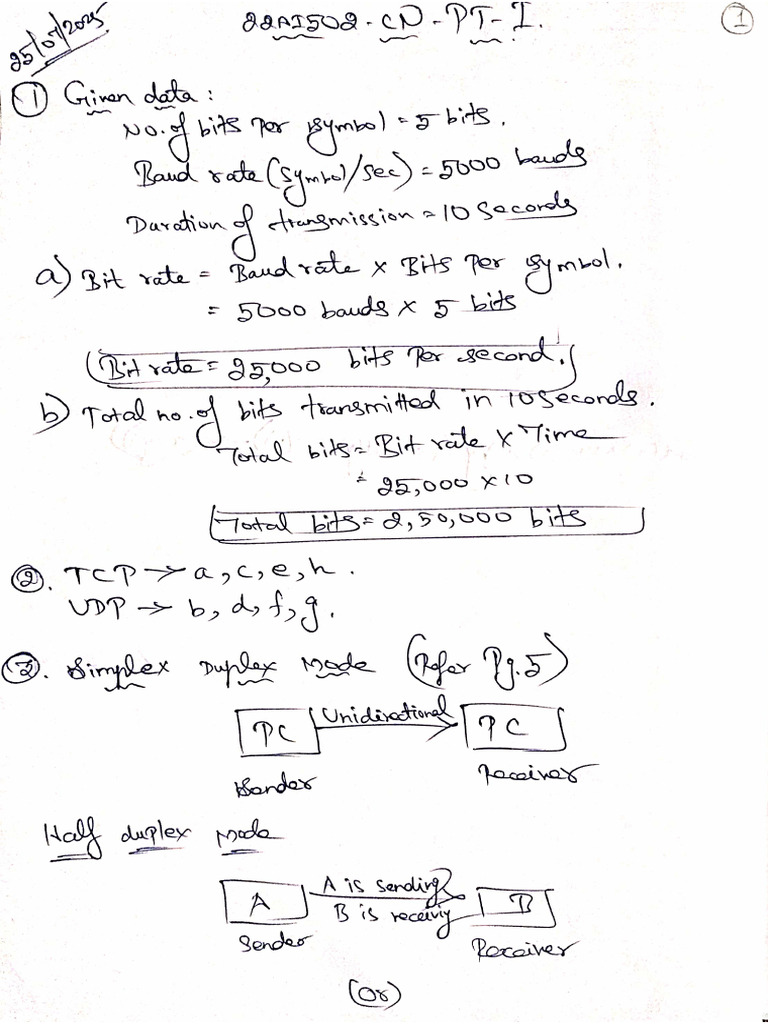 25/07/2025
22AI502 - CN - PT - I.
1
① Given data:
No. of bits per symbol = 5 bits.
Baud rate (symbol/sec) = 5000 bauds
Duration of transmission = 10 seconds
a) Bit rate = Baud rate × Bits per symbol.
= 5000 bauds × 5 bits
Bit rate = 25,000 bits per second.
b) Total no. of bits transmitted in 10 seconds.
Total bits = Bit rate × Time
= 25,000 × 10
Total bits = 2,50,000 bits
②. TCP → a, c, e, h.
UDP → b, d, f, g.
③. Simplex Duplex Mode (Refer Pg.5)
PC Unidirectional PC
Sender Receiver
Half duplex Mode
A A is sending B
B is receiving
Sender Receiver
(Or)